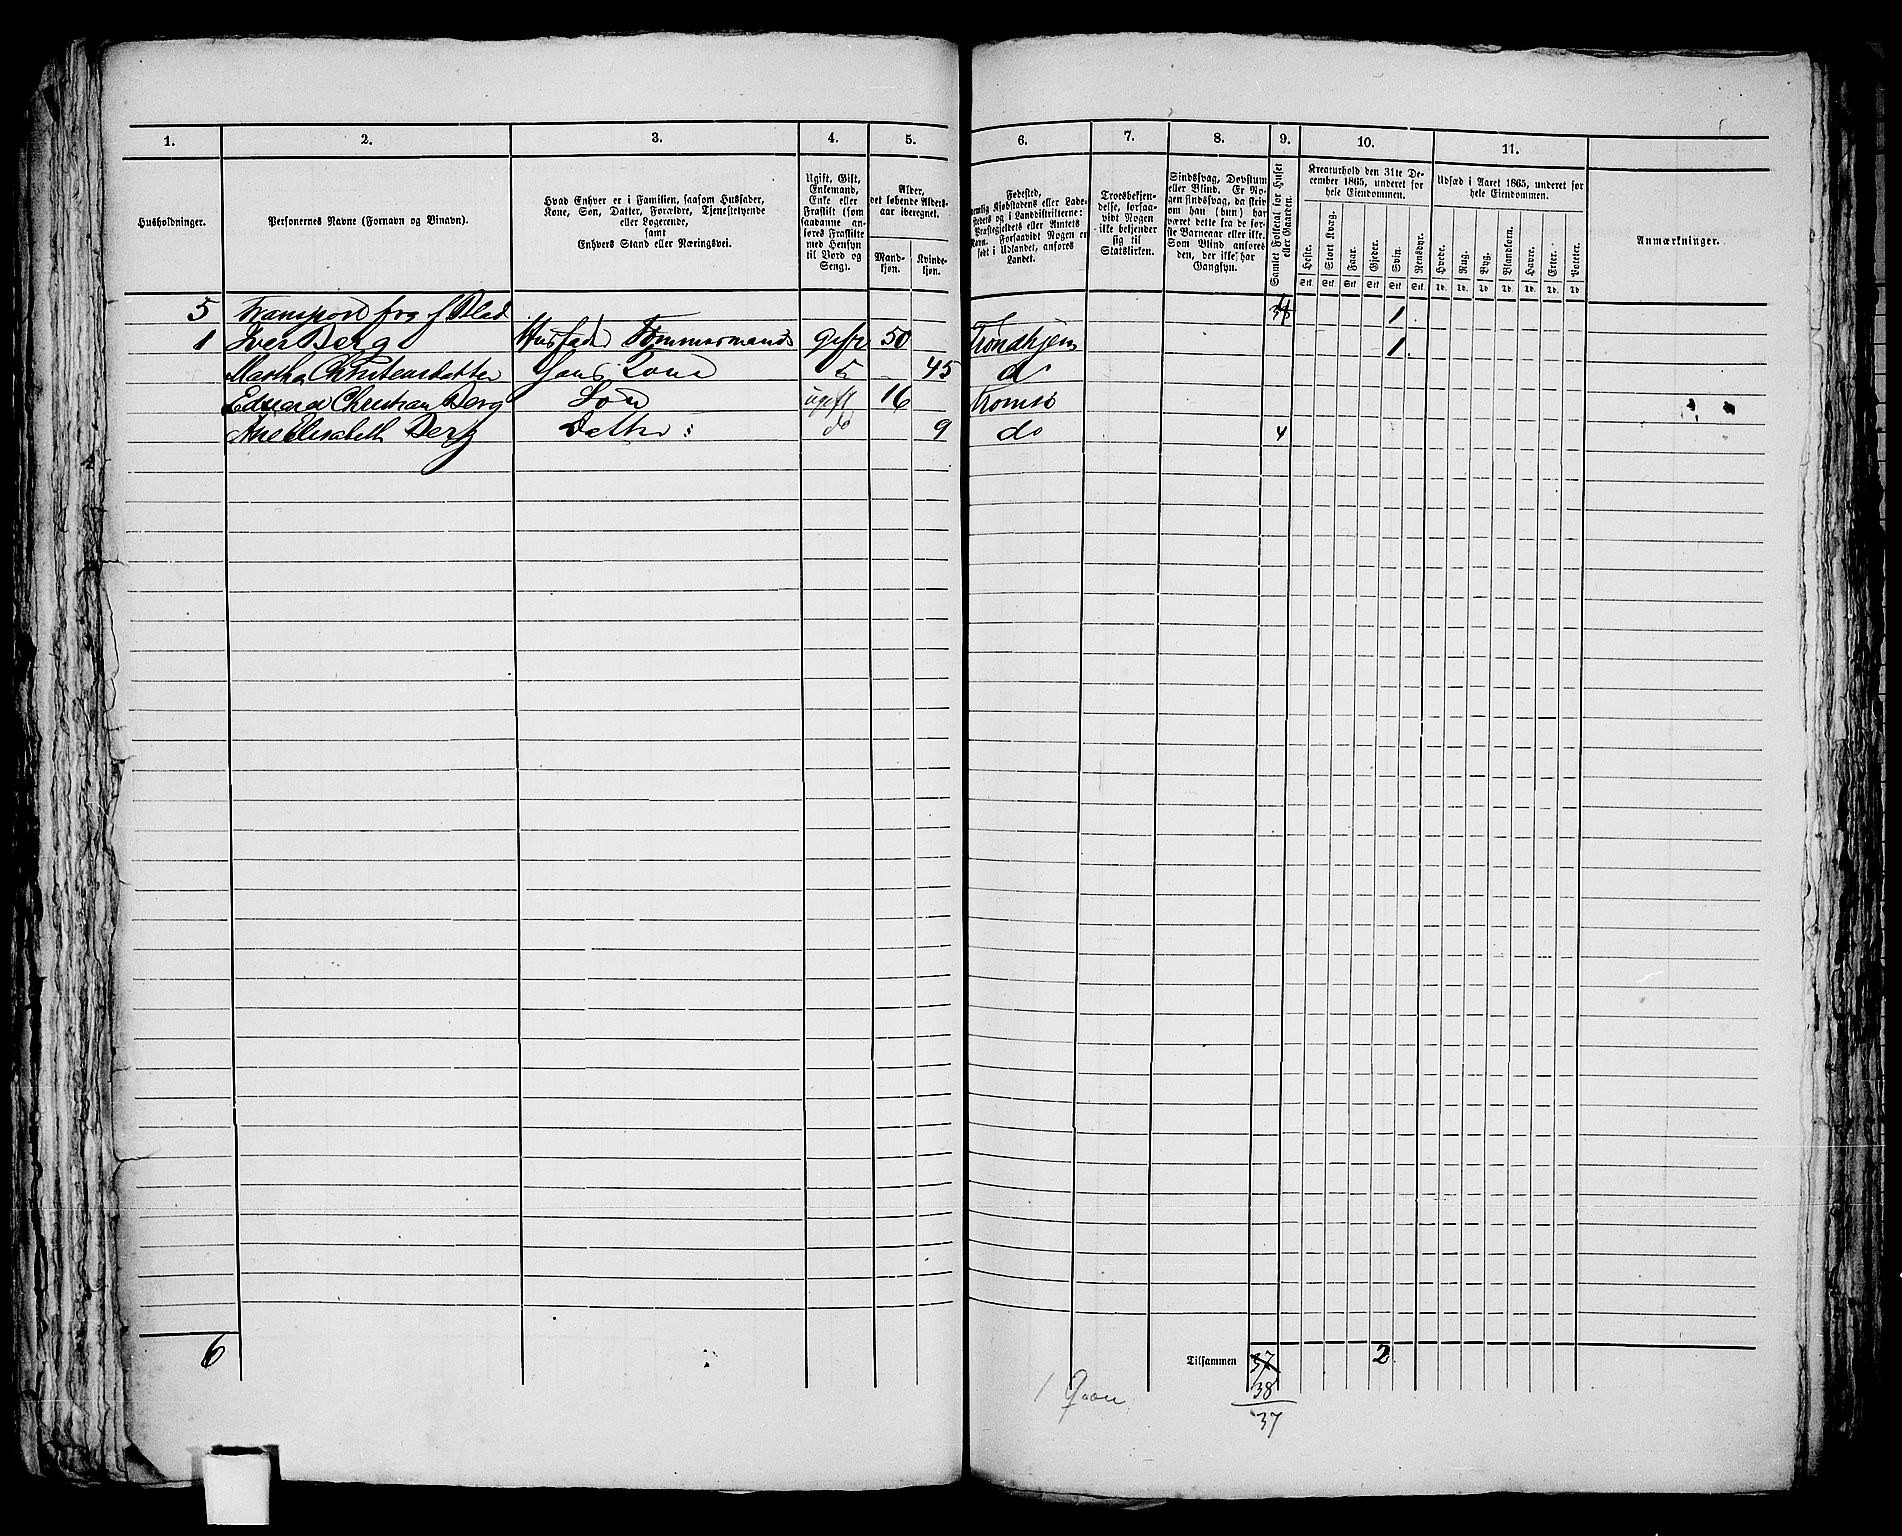 1. 2. 3. 4. 5. 6. 7. 8. 9. 10. 11.
Husholdninger.
Personernes Navne (Fornavn og Binavn).
Hvad Enhver er i Familien, saasom Husfader,
Kone, Søn, Datter, Forældre, Tjenestetyende
eller Logerende,
samt
Enhvers Stand eller Næringsvei.
Ugift, Gift,
Enkemand,
Enke eller
Fraskilt (som
saadanne an-
føres Fraskilte
med Hensyn
til Bord og
Seng).
Alder,
det løbende Alders-
aar iberegnet.
Mand-
kjøn.
Kvinde-
kjøn.
Fødested,
nemlig Kjøbstadens eller Lade-
stedets og i Landdistrikterne:
Præstegjeldets eller Amtets
Navn. Forsaavidt Nogen er
født i Udlandet, anføres
Landet.
Troesbekjen-
delse, forsaa-
vidt Nogen
ikke bekjender
sig til
Statskirken.
Sindssvag, Døvstum
eller Blind. Er No-
gen sindssvag, da skriv
om han (hun) har
været dette fra de før-
ste Barneaar eller ikke.
Som Blind anføres
den, der ikke har
Gangsyn.
Samlet Folketal for Huset
eller Gaarden.
Kreaturhold den 31te De-
cember 1865, underet for
hele Eiendommen.
Heste. Stort Kvæg. Faar. Gjeder. Svin. Rensdyr.
Stk. Stk. Stk. Stk. Stk. Stk.
Udsæd i Aaret 1865, underet for
hele Eiendommen.
Hvede. Rug. Byg. Blandkorn. Havre. Erter. Poteter.
Td. Td. Td. Td. Td. Td. Td.
Anmærkninger.
5 Transport fra f Blad 1
1 Iver Berg Husfader Tømmermand gift 50 Trondhjem 1
Martha Christensdatter hans Kone 45 do
Eduard Christian Berg Søn ugift 16 Tromsø
Ane Elisabeth Berg Datter do 9 do 4
6 Tilsammen 37 2
38
37
1 Qvæn